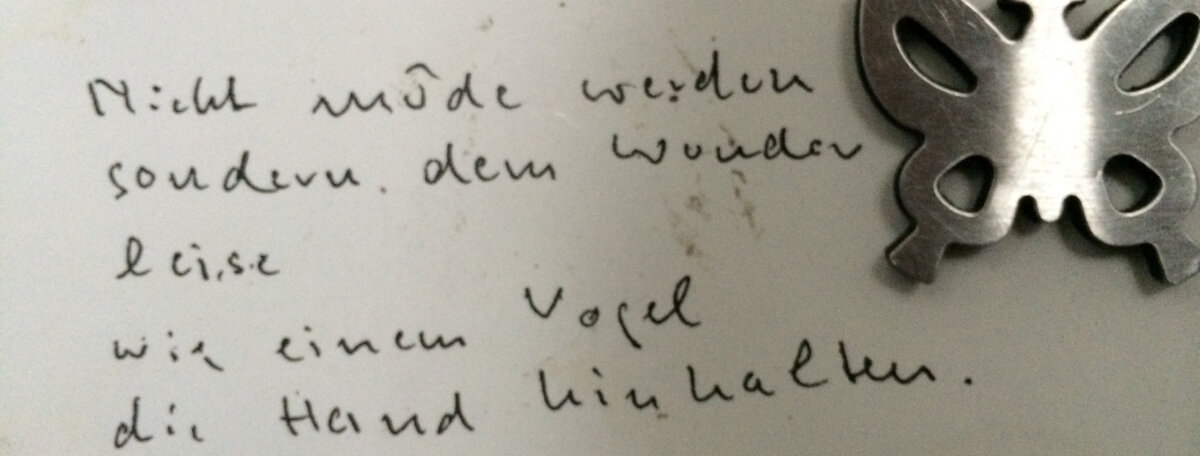 Nicht müde werden
sondern dem Wunder
leise
wie einem Vogel
die Hand hinhalten.